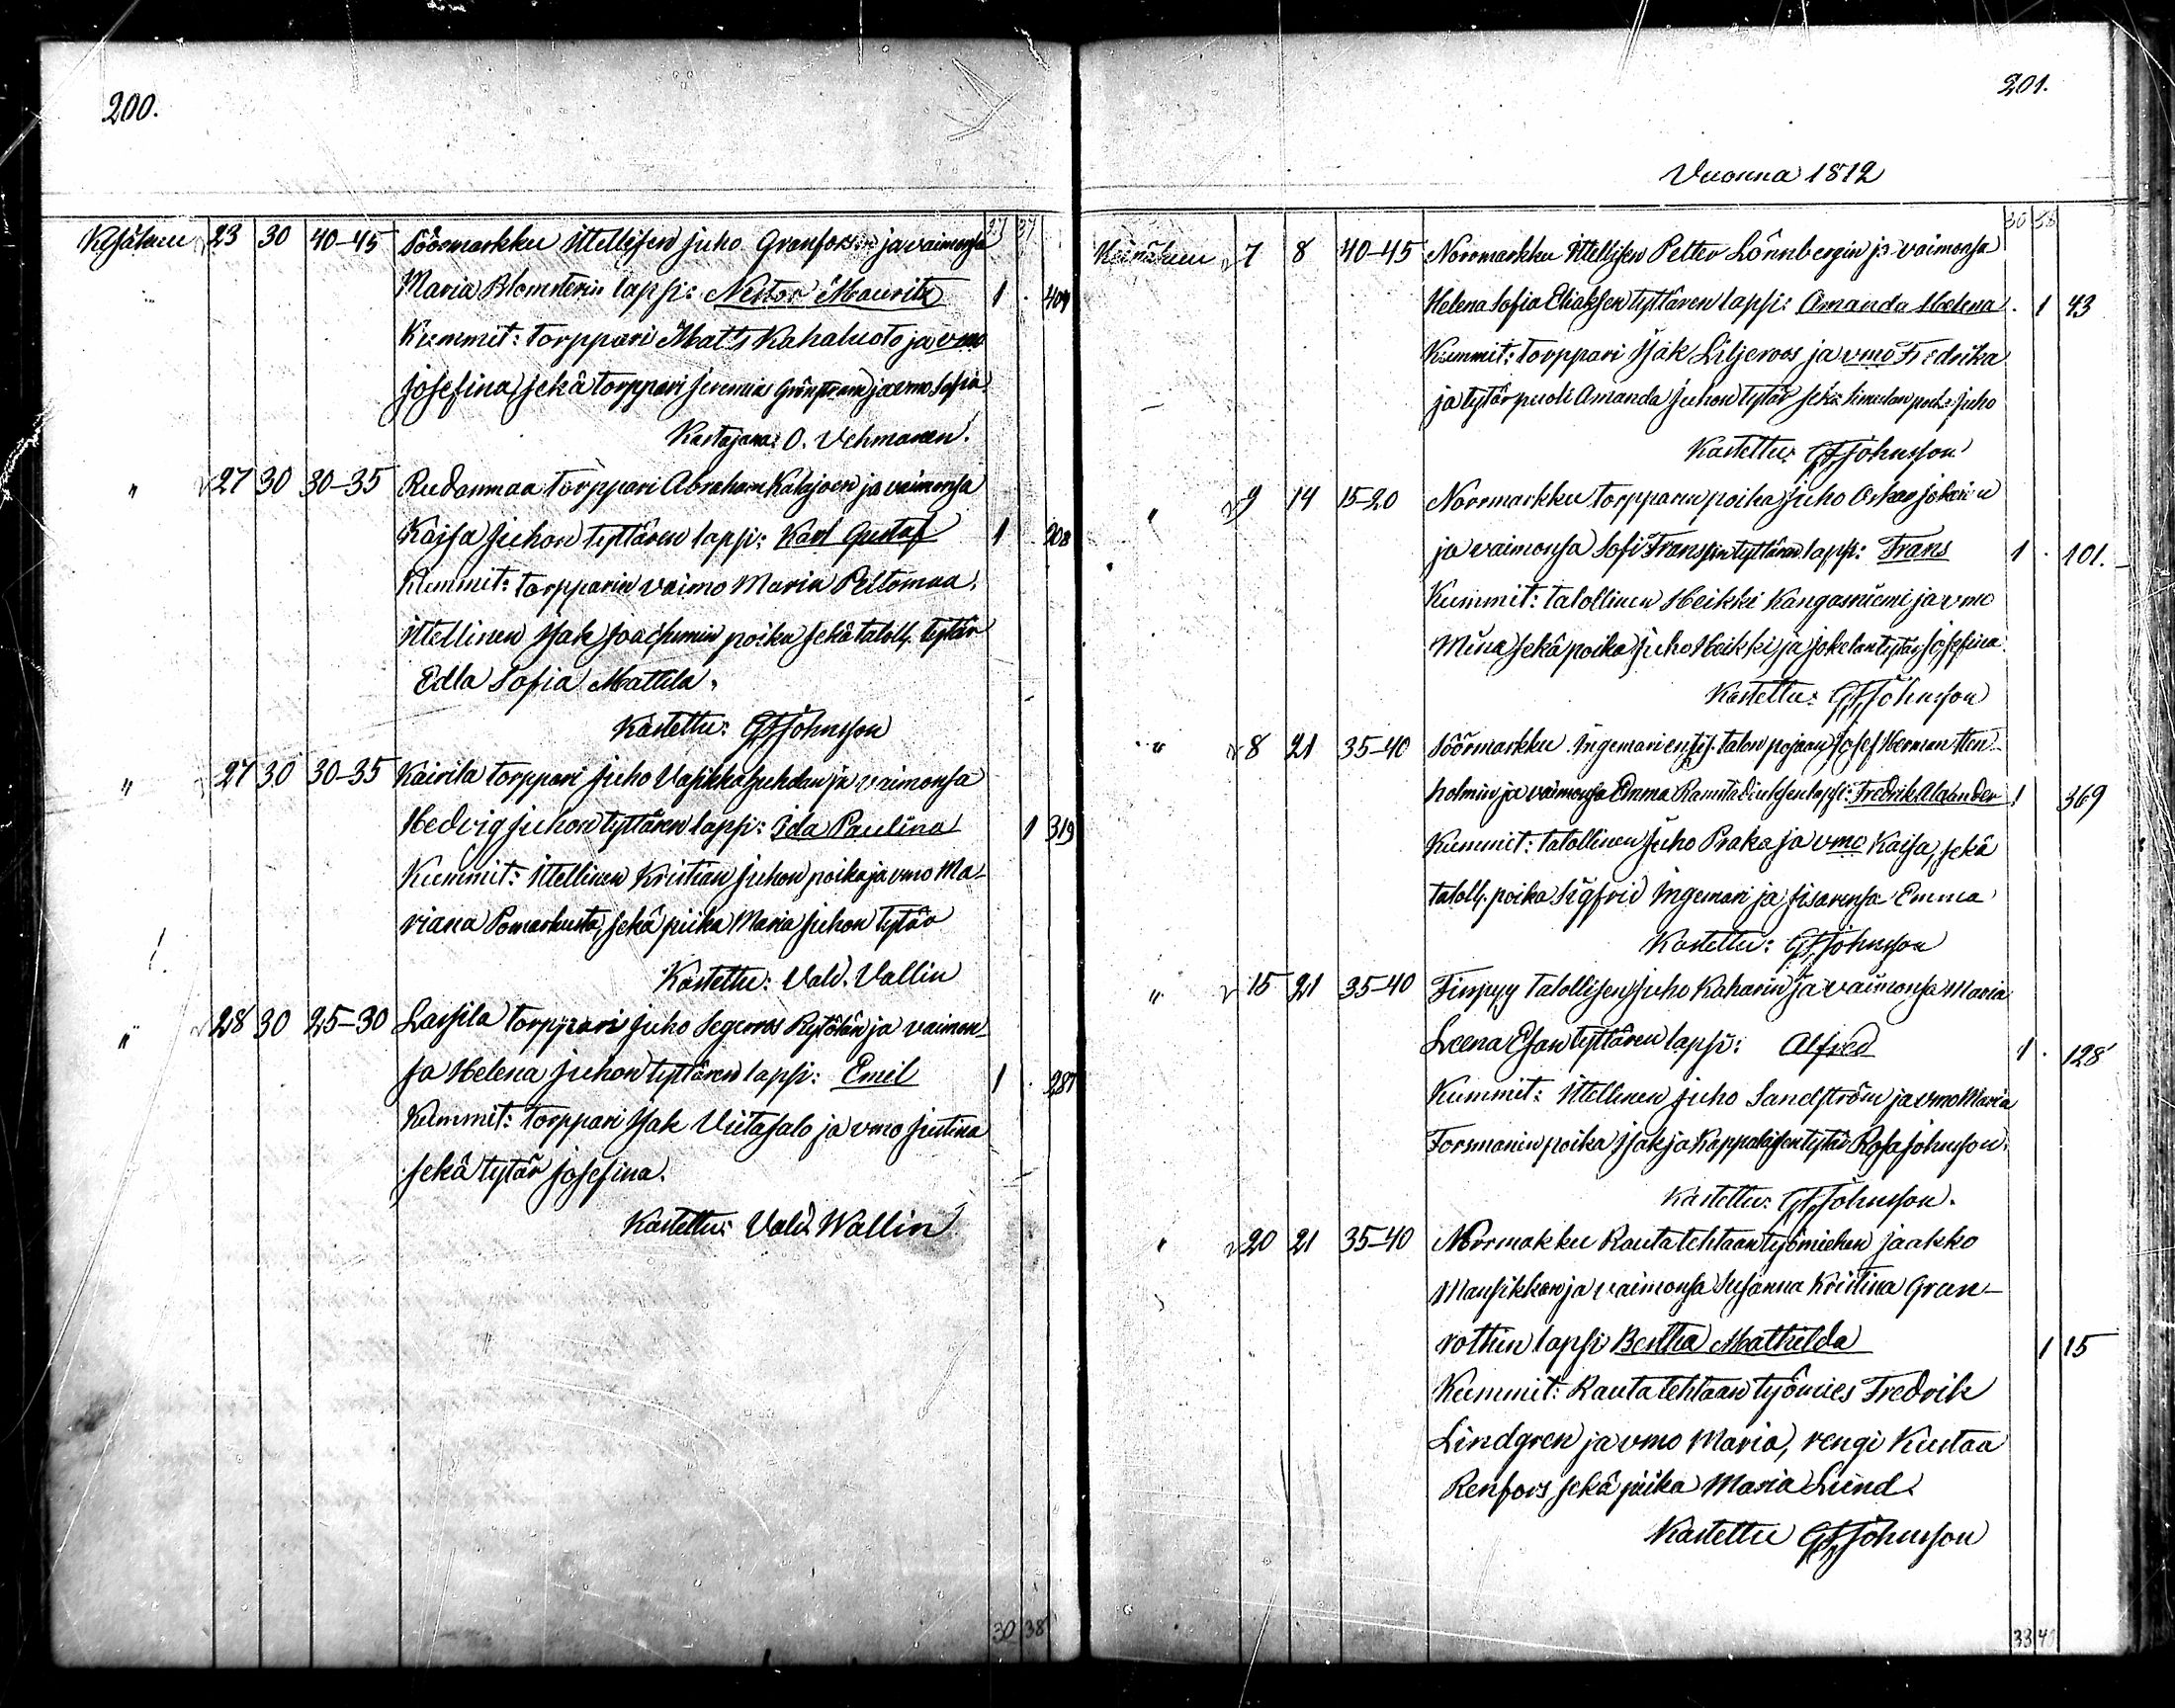 200.
27 37
Kesäkuu 23 30 40-45 Söörmarkku Ittellisen Juho Granforsin ja vaimonsa
Maria Blomsterin lapsi: Nestor Mauritz 1 . 404
Kummit: torppari Matts Kahaluoto ja vmo
Josefina, sekä torppari Jeremia Grönstrand ja vmo Sofia.
Kastajana: O. Vehmanen.
" 27 30 30-35 Rudanmaa torppari Abraham Katajoen ja vaimonsa
Kaisa Juhon tyttären lapsi: Karl Gustaf 1 208
Kummit: torpparin vaimo Maria Peltomaa,
ittellinen Isak Joachimin poika sekä taloll. tytär
Edla Sofia Mattila.
Kastettu: GF Johnsson
" 27 30 30-35 Kairila torppari Juho Vasikkajuhdan ja vaimonsa
Hedvig Juhon tyttären lapsi: Ida Paulina 1 319
Kummit: Ittellinen Kristian Juhon poika ja vmo Ma-
riana Pomarkusta, sekä piika Maria Juhon tytär
Kastettu: Vald. Vallin
" 28 30 25-30 Lassila torppari Juho Segerroos Rytölän ja vaimon-
sa Helena Juhon tyttären lapsi: Emil 1 . 287
Kummit: torppari Isak Viitasalo ja vmo Justina
sekä tytär Josefina.
Kastettu: Vald. Wallin
30 38
201.
Vuonna 1872
30 38
Heinäkuu 7 8 40-45 Norrmarkku Ittellisen Petter Lönnbergin ja vaimonsa
Helena Sofia Eliaksen tyttären lapsi: Amanda Helena . 1 43
Kummit: torppari Isak Liljeroos ja vmo Fredrika
ja tytärpuoli Amanda Juhon tytär sekä Juho
Kastettu: GF Johnsson
" 9 14 15-20 Norrmarkku torpparin poika Juho Oskar Jokisin
ja vaimonsa Sofi Franssin tyttären lapsi: Frans 1 . 101.
Kummit: talollinen Heikki Kangasniemi ja vmo
Miina sekä poika Juho Heikki ja Jokelan tytär Josefina.
Kastettu: GF Johnsson
" 8 21 35-40 Söörmarkku Ingemarien talon pojan Josef Herman Sten-
holmin ja vaimonsa Emma lapsi: Fredrik Alexander 1 369
Kummit: talollinen Juho Praka ja vmo Kaisa, sekä
taloll. poika Sigfrid Ingemari ja sisarensa Emma
Kastettu: GF Johnsson
" 15 21 35-40 Finpyy talollisen Juho Kaharin ja vaimonsa Maria
Leena Esan tyttären lapsi: Alfred 1 . 128
Kummit: Ittellinen Juho Sandström ja vmo Maria
Forsmanin poika Isak ja Kappalaisen tytär Rosa Johnsson.
Kastettu: GF Johnsson.
" 20 21 35-40 Norrmakku Rautatehtaan työmiehen Jaakko
Mansikkan ja vaimonsa Susanna Kristina Gran-
rothin lapsi Bertha Mathilda 1 15
Kummit: Rautatehtaan työmies Fredrik
Lindgren ja vmo Maria, rengi Kustaa
Renfors sekä piika Maria Lund.
Kastettu GF Johnsson
33 40